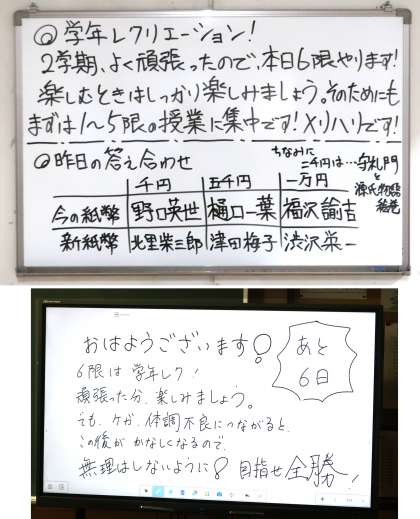 ◎学年レクリエーション!
2学期、よく頑張ったので、本日6限やります!
楽しむときはしっかり楽しみましょう。そのためにも
まずは1〜5限の授業に集中です!メリハリです!
◎昨日の答え合わせ
ちなみに
二千円は…守礼門
と
源氏物語
絵巻
千円 五千円 一万円
今の紙幣 野口英世 樋口一葉 福沢諭吉
新紙幣 北里柴三郎 津田梅子 渋沢栄一
おはようございます!
あと
6日
6限は学年レク!
頑張った分、楽しみましょう。
でも、ケガ、体調不良につながると、
この後が かなしくなるので、
無理はしないように! 目指せ全勝!